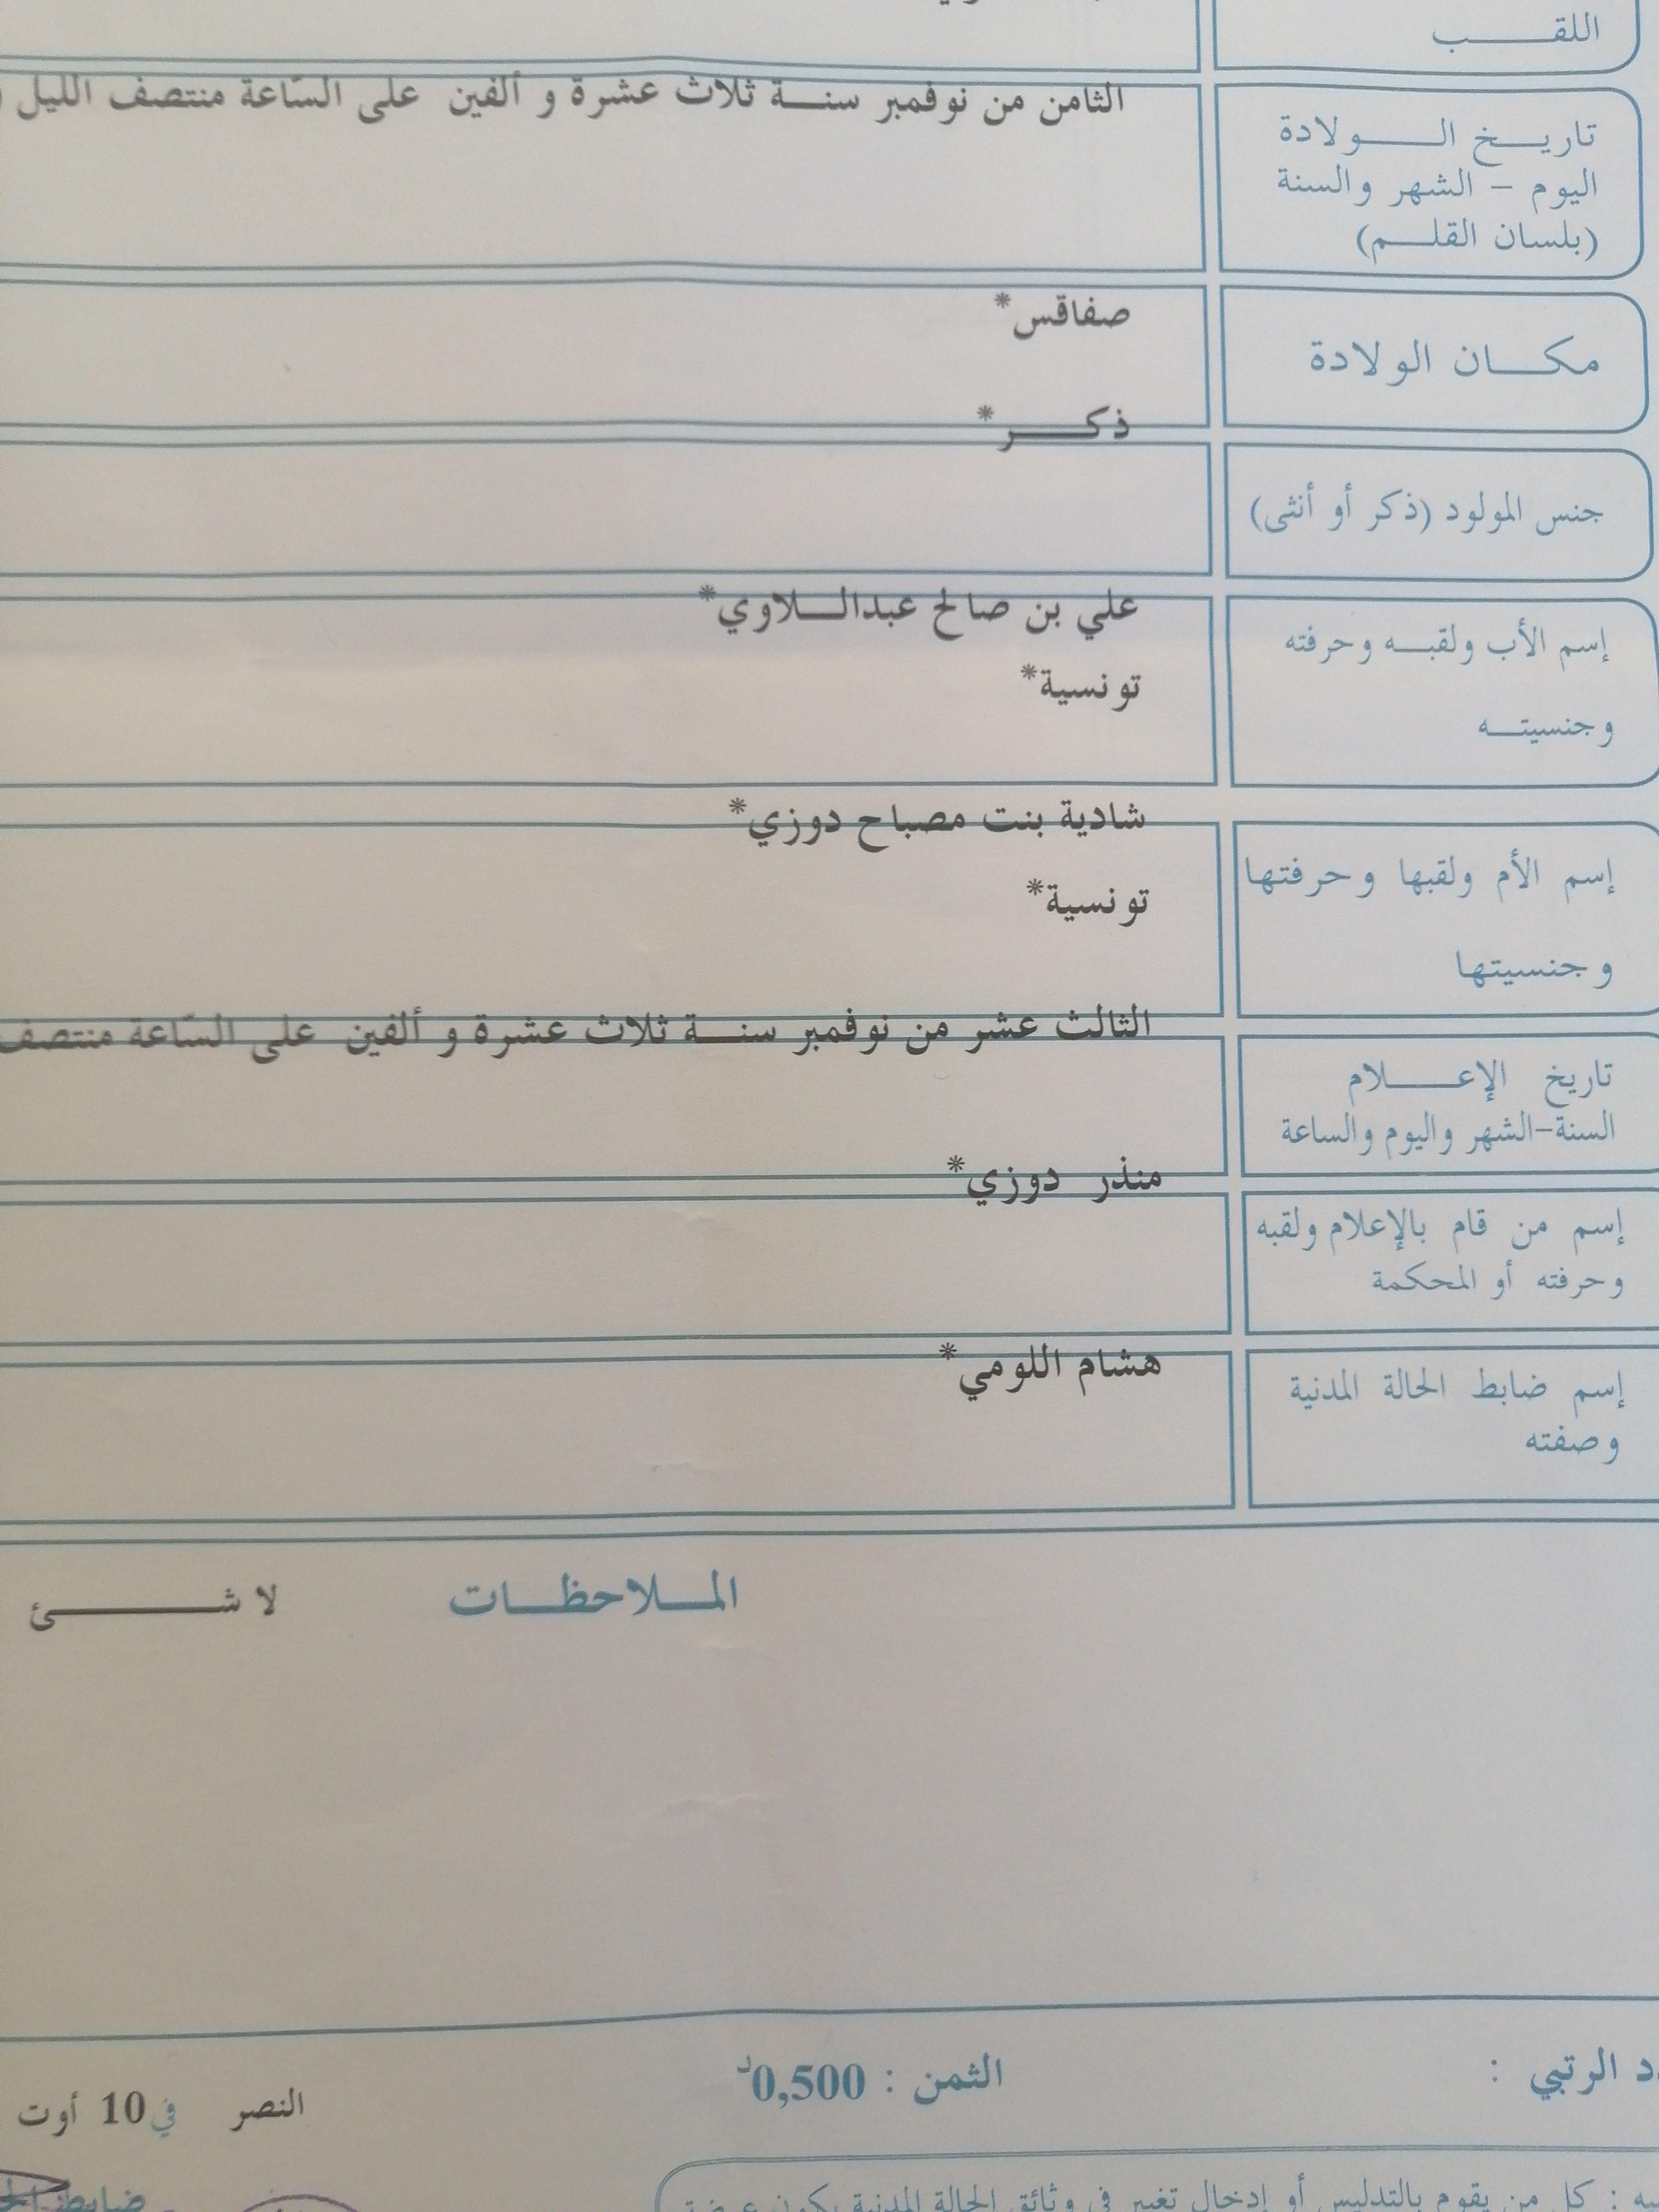 اللقب
تاريخ الولادة
اليوم - الشهر والسنة
(بلسان القلم)
الثامن من نوفمبر سنة ثلاث عشرة و ألفين على السّاعة منتصف الليل
مكان الولادة
صفاقس*
ذكر*
جنس المولود (ذكر أو أنثى)
علي بن صالح عبداللاوي*
إسم الأب ولقبه وحرفته
تونسية*
وجنسيته
شادية بنت مصباح دوزي*
إسم الأم ولقبها وحرفتها
تونسية*
وجنسيتها
الثالث عشر من نوفمبر سنة ثلاث عشرة و ألفين على السّاعة منتصف
تاريخ الإعلام
السنة-الشهر واليوم والساعة
منذر دوزي*
إسم من قام بالإعلام ولقبه
وحرفته أو المحكمة
هشام اللومي*
إسم ضابط الحالة المدنية
وصفته
الملاحظات لا شئ
الرتبي :
الثمن : 0,500د
النصر في 10 أوت
ضابط
: كل من يقوم بالتدليس أو إدخال تغيير في وثائق الحالة المدنية يكون عرضة